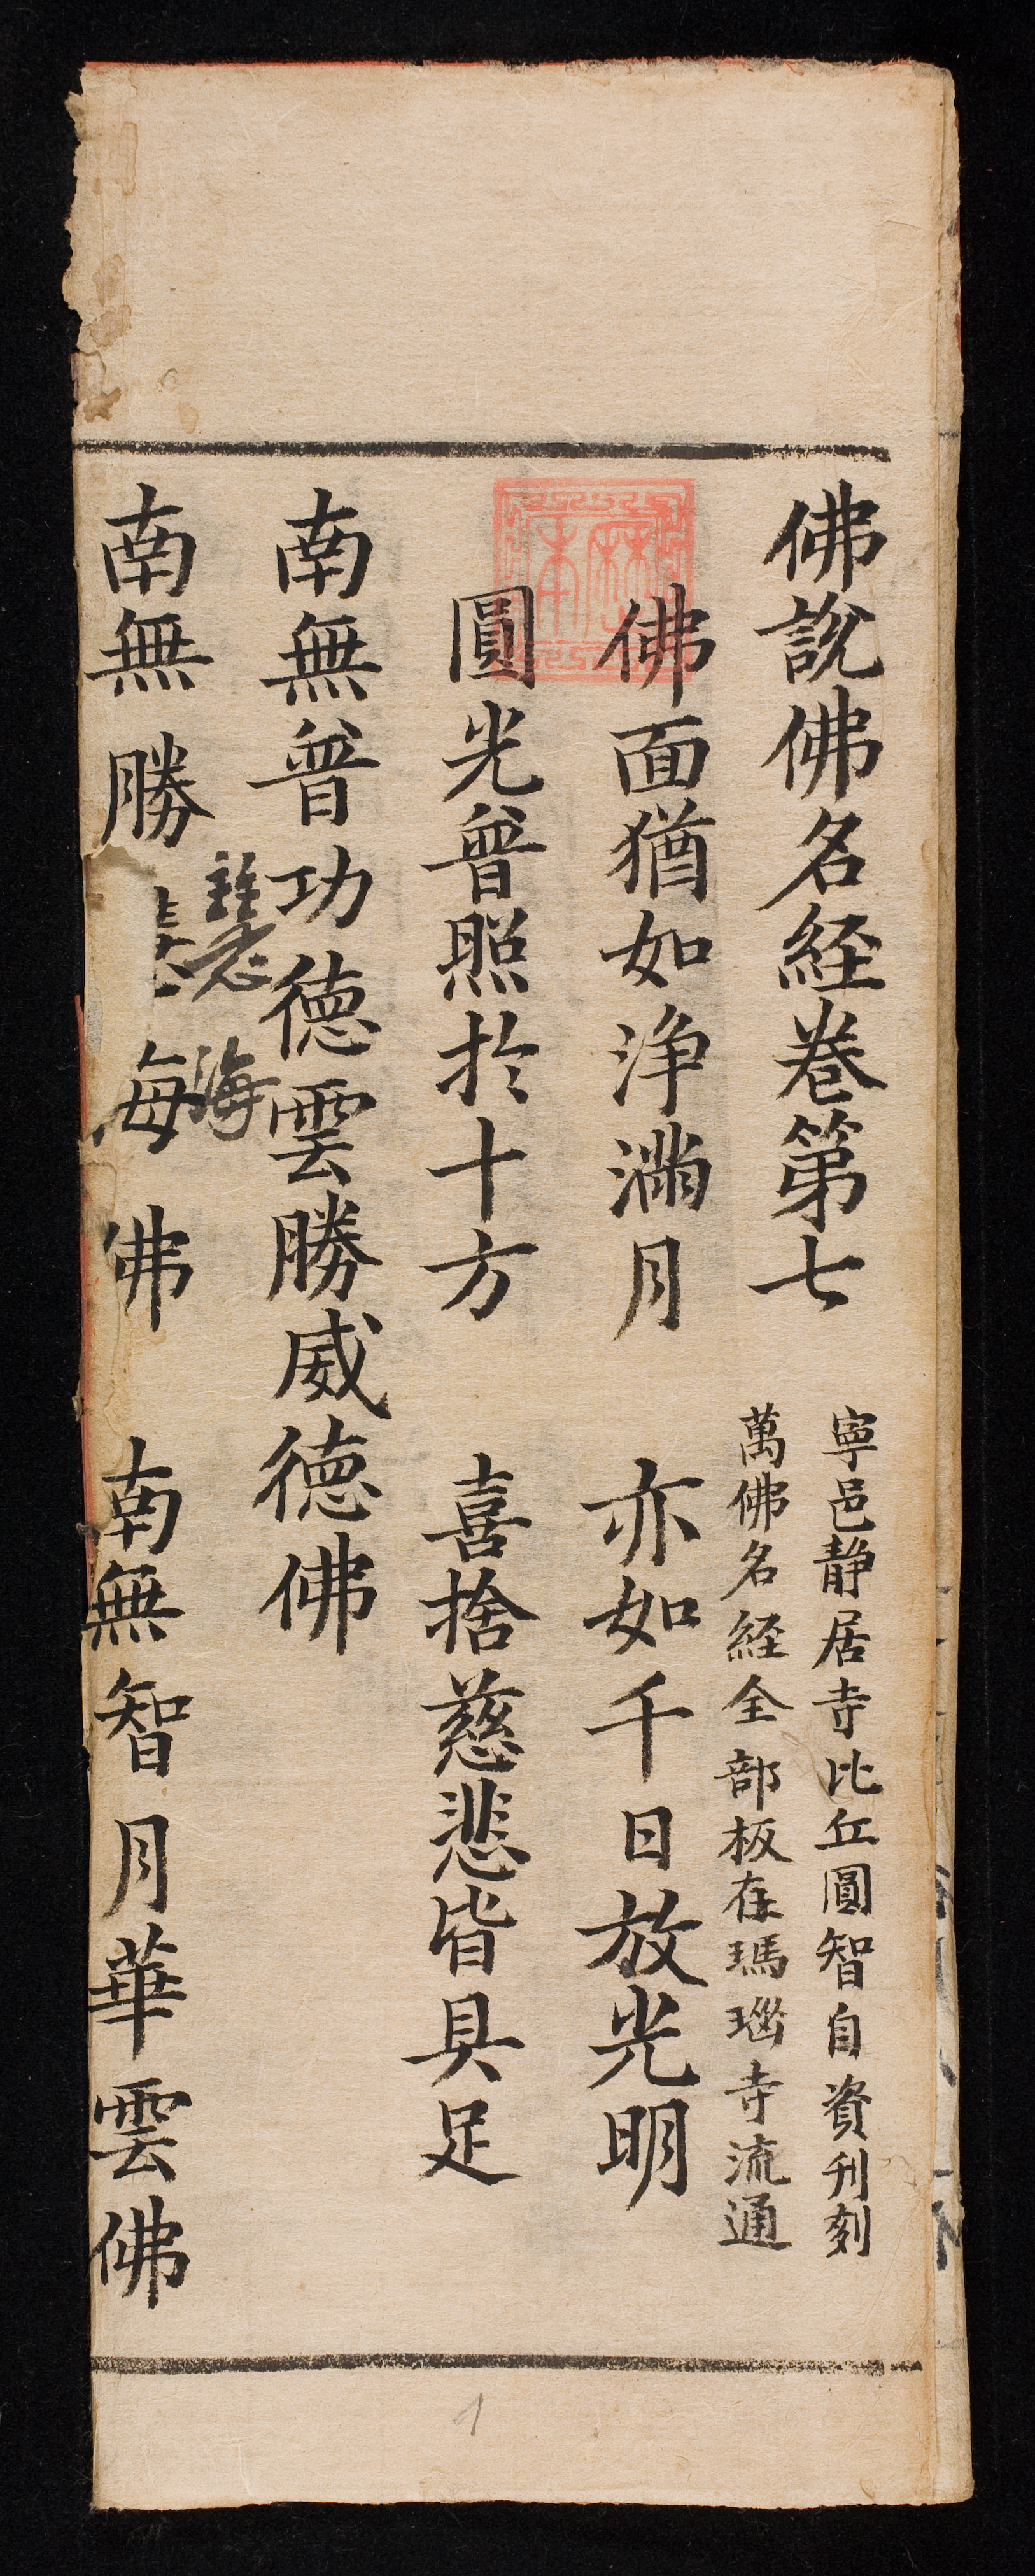 佛說佛名経卷第七
寧邑静居寺比丘圓智自資刋刻
萬佛名経全部板在瑪瑙寺流通
佛面猶如淨滿月 亦如千日放光明
圓光普照於十方 喜捨慈悲皆具足
南無普功德雲勝威德佛
慧海
南無勝慧海佛 南無智月華雲佛
1